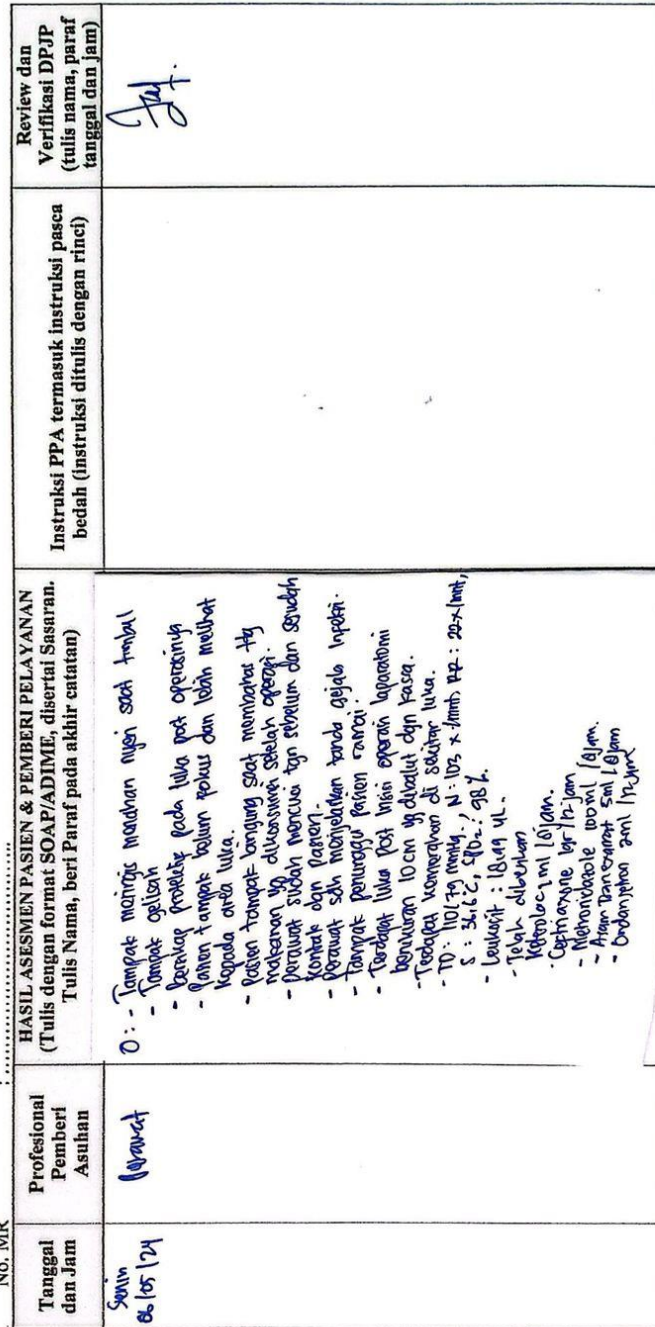 No. MR
Tanggal
dan Jam
Profesional
Pemberi
Asuhan
HASIL ASESMEN PASIEN & PEMBERI PELAYANAN
(Tulis dengan format SOAP/ADIME, disertai Sasaran.
Tulis Nama, beri Paraf pada akhir catatan)
Instruksi PPA termasuk instruksi pasca
bedah (instruksi ditulis dengan rinci)
Review dan
Verifikasi DPJP
(tulis nama, paraf
tanggal dan jam)
Senin
06/05/24
Perawat
O : - Tampak meringis menahan nyeri saat timbul
- Tampak gelisah
- Bersikap protektif pada luka post operasinya
- Pasien tampak belum fokus dan lebih melihat
kepada area luka.
- Pasien tampak bingung saat membahas ttg
makanan yg dikonsumsi setelah operasi.
- Perawat sudah mencuci tgn sebelum dan sesudah
kontak dgn pasien.
- Perawat sdh menjelaskan tanda gejala infeksi.
- Tampak penunggu pasien ramai.
- Terdapat luka post insisi operasi laparatomi
berukuran 10 cm yg dibalut dgn kasa.
- Terdapat kemerahan di sekitar luka.
- TD : 110/79 mmHg, N : 103 x/mnt, RR : 22x/mnt,
S : 36,6°C, SPO2 : 98 %.
- Leukosit : 18.49 uL.
- Telah diberikan
Ketorolac 1 ml /8jam.
- Ceftriaxone 1gr/12 jam
- Metronidazole 100 ml /8jam.
- Asam Tranexamat 5ml /8jam
- Ondansetron 2ml /12 jam